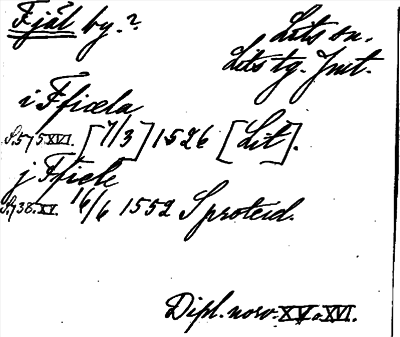 Fjäl by.?
Lits sn.
Lits tg. Jmt.
i Fficela
S. 575 XVI. [7/3] 1526 [Lit].
j Ffiele
S. 738. XV. 16/6 1552 Sproteid.
Dipl. norv. XV o. XVI.